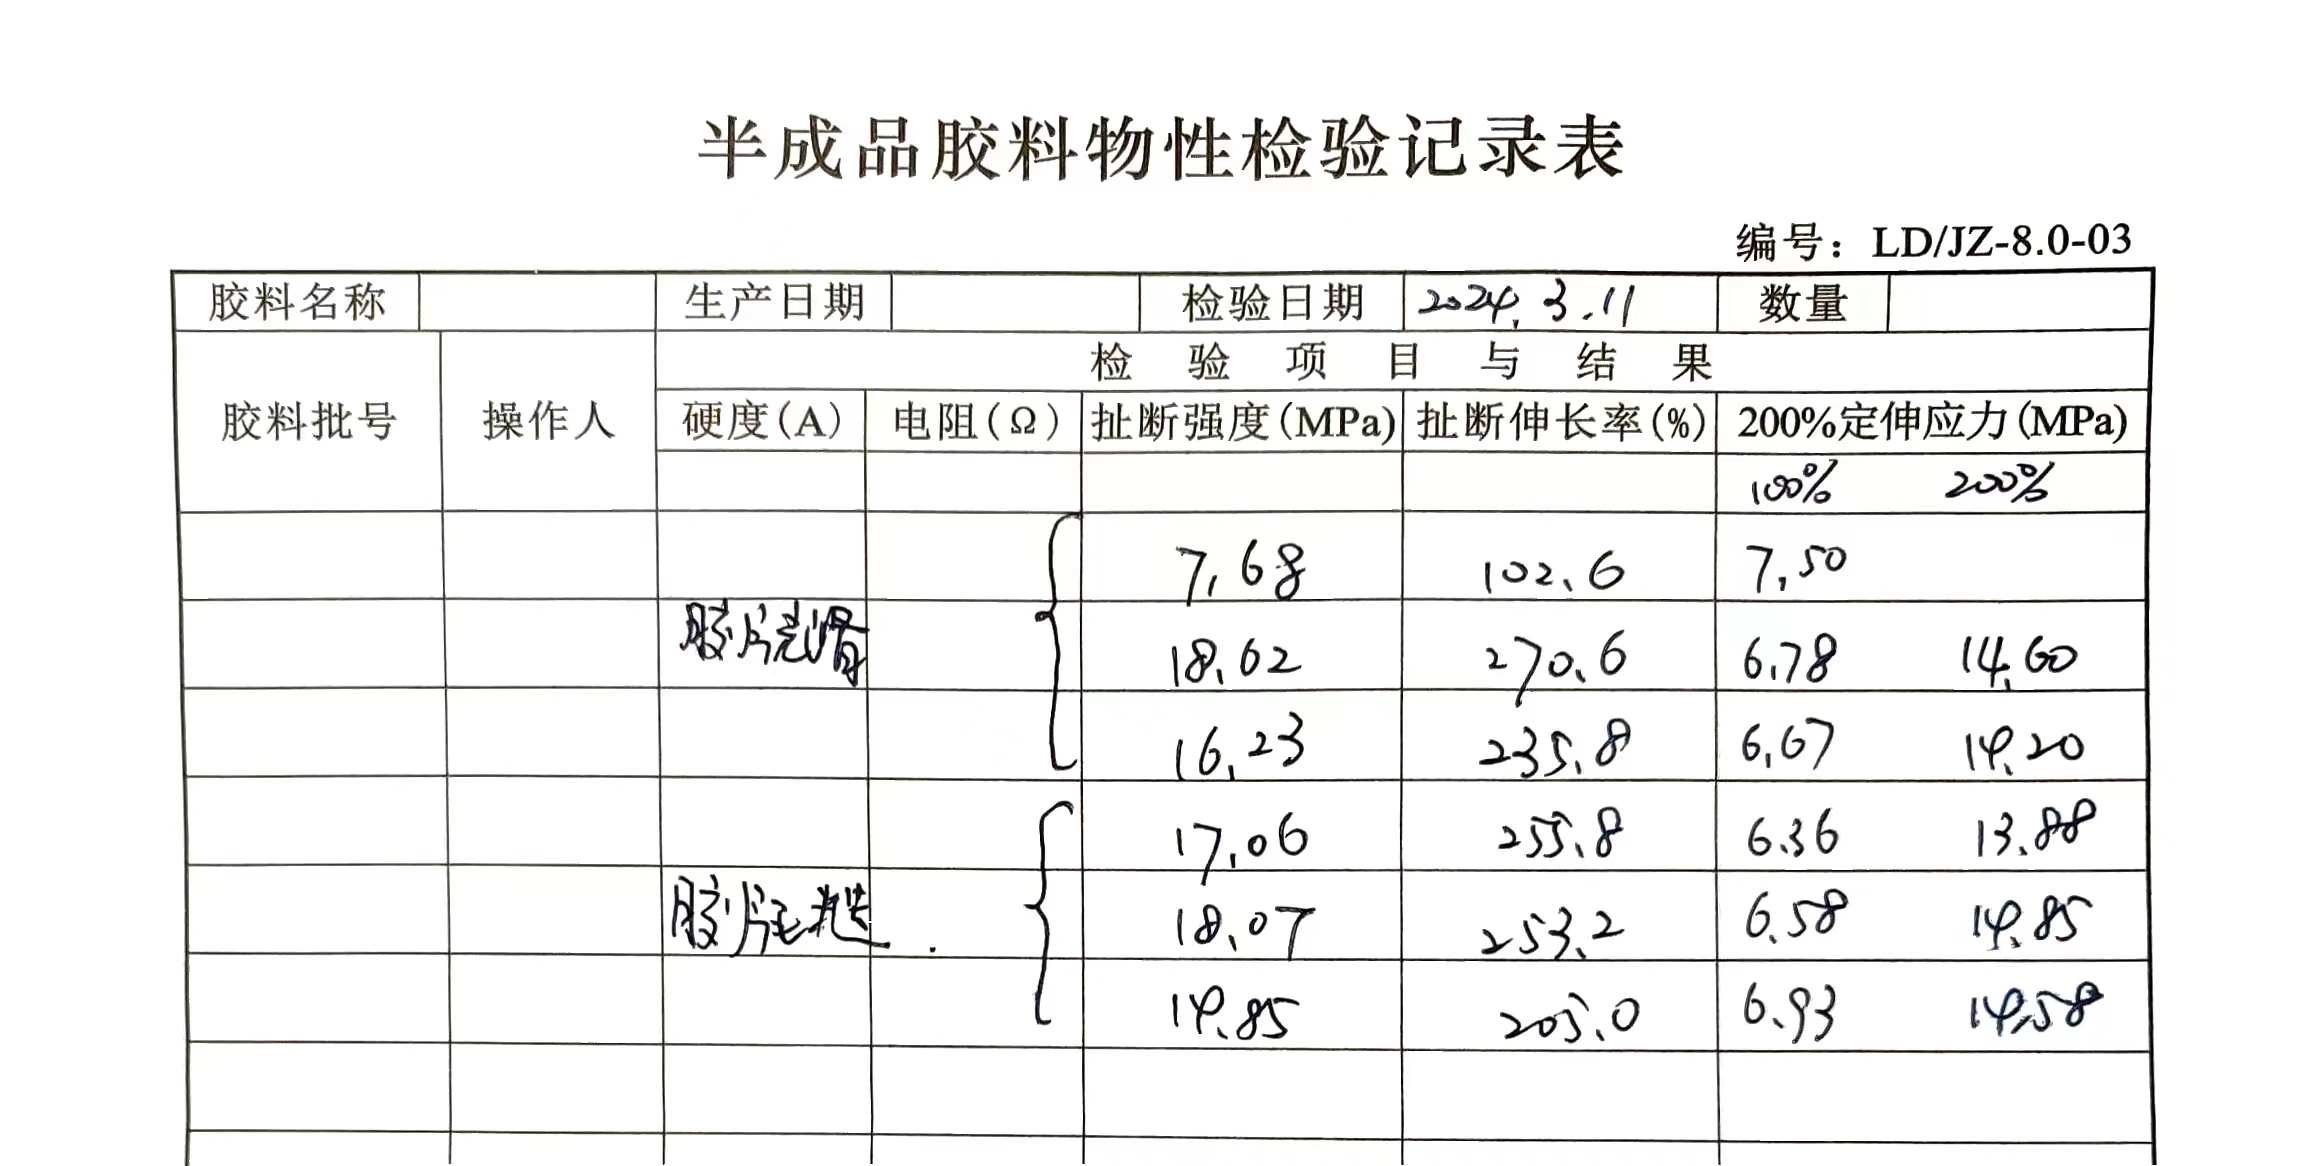 半成品胶料物性检验记录表
编号：LD/JZ-8.0-03
胶料名称 生产日期 检验日期 2024.3.11 数量
检验项目与结果
胶料批号 操作人 硬度(A) 电阻(Ω) 扯断强度(MPa) 扯断伸长率(%) 200%定伸应力(MPa)
100% 200%
7.68 102.6 7.50
胶片光滑 18.62 270.6 6.78 14.60
16.23 235.8 6.67 14.20
17.06 255.8 6.36 13.88
胶片毛糙 18.07 253.2 6.58 14.85
14.85 205.0 6.93 14.58